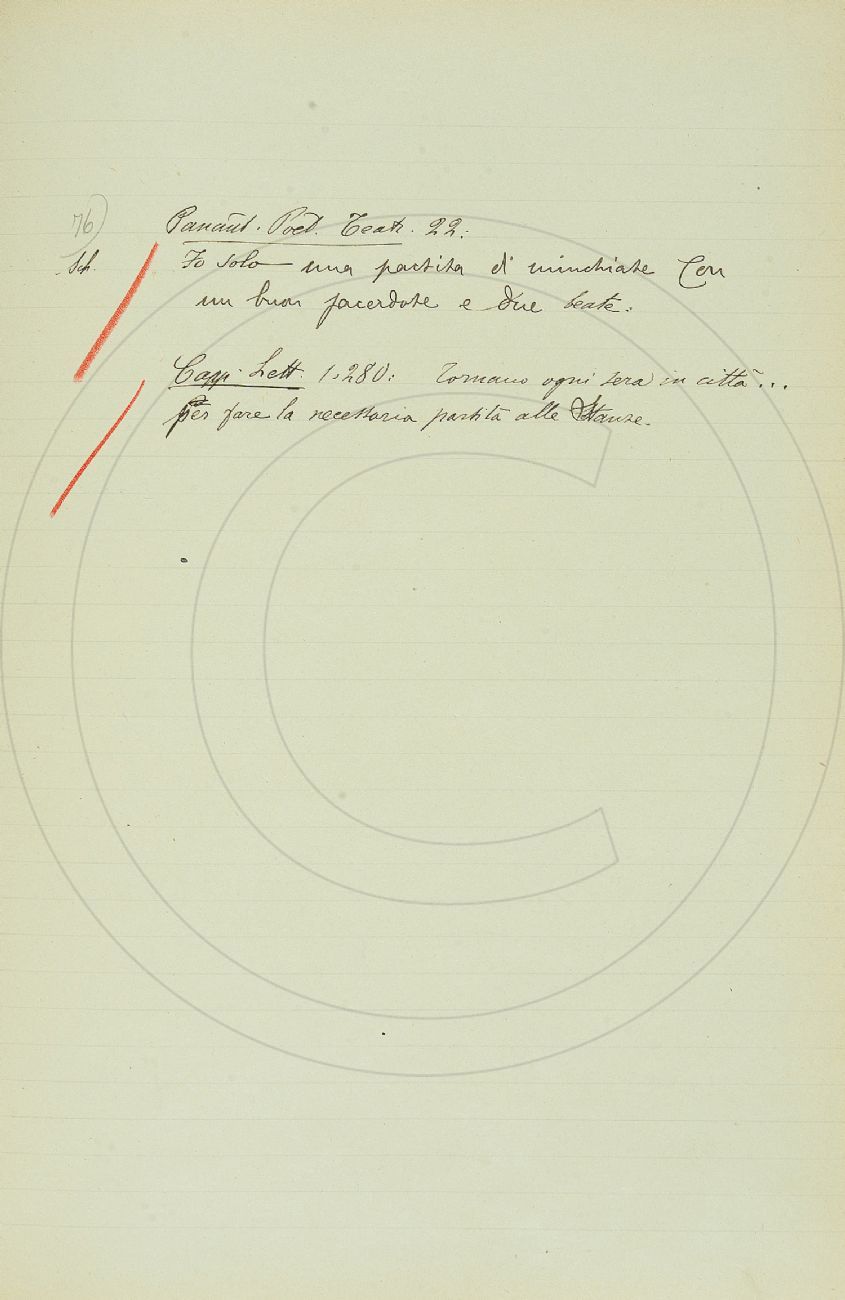 76)
Panant. Poet. Teatr. 22:
Sch. Fo solo una partita di minchiate Con
un buon sacerdote e due beate.
Capp. Lett. 1.280: Tornano ogni sera in città...
per fare la necessaria partita alle Stanze.